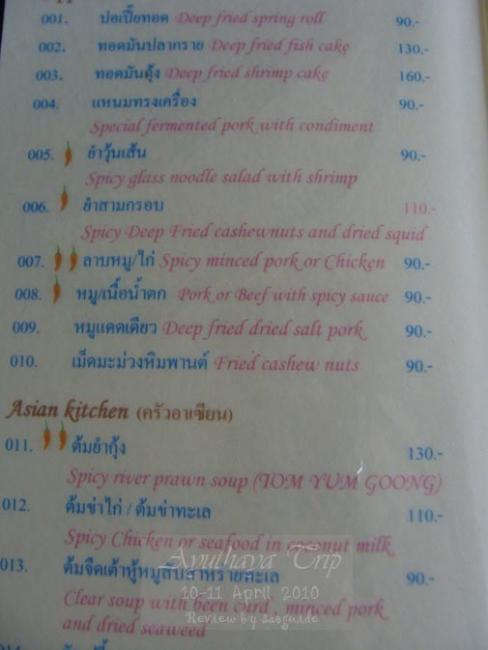 001. ปอเปี๊ยทอด Deep fried spring roll 90.-
002. ทอดมันปลากราย Deep fried fish cake 130.-
003. ทอดมันกุ้ง Deep fried shrimp cake 160.-
004. แหนมทรงเครื่อง 90.-
Special fermented pork with condiment
005. ยำวุ้นเส้น 90.-
Spicy glass noodle salad with shrimp
006. ยำสามกรอบ 110.-
Spicy Deep Fried cashewnuts and dried squid
007. ลาบหมู/ไก่ Spicy minced pork or Chicken 90.-
008. หมู/เนื้อน้ำตก Pork or Beef with spicy sauce 90.-
009. หมูแดดเดียว Deep fried dried salt pork 90.-
010. เม็ดมะม่วงหิมพานต์ Fried cashew nuts 90.-
Asian kitchen (ครัวอาเซียน)
011. ต้มยำกุ้ง 130.-
Spicy river prawn soup (TOM YUM GOONG)
012. ต้มข่าไก่ / ต้มข่าทะเล 110.-
Spicy Chicken or seafood in coconut milk
Ayuthaya Trip
013. ต้มจืดเต้าหู้หมูสับสาหร่ายทะเล 90.-
10-11 April 2010
Clear soup with been curd , minced pork
Review by sasguide
and dried seaweed